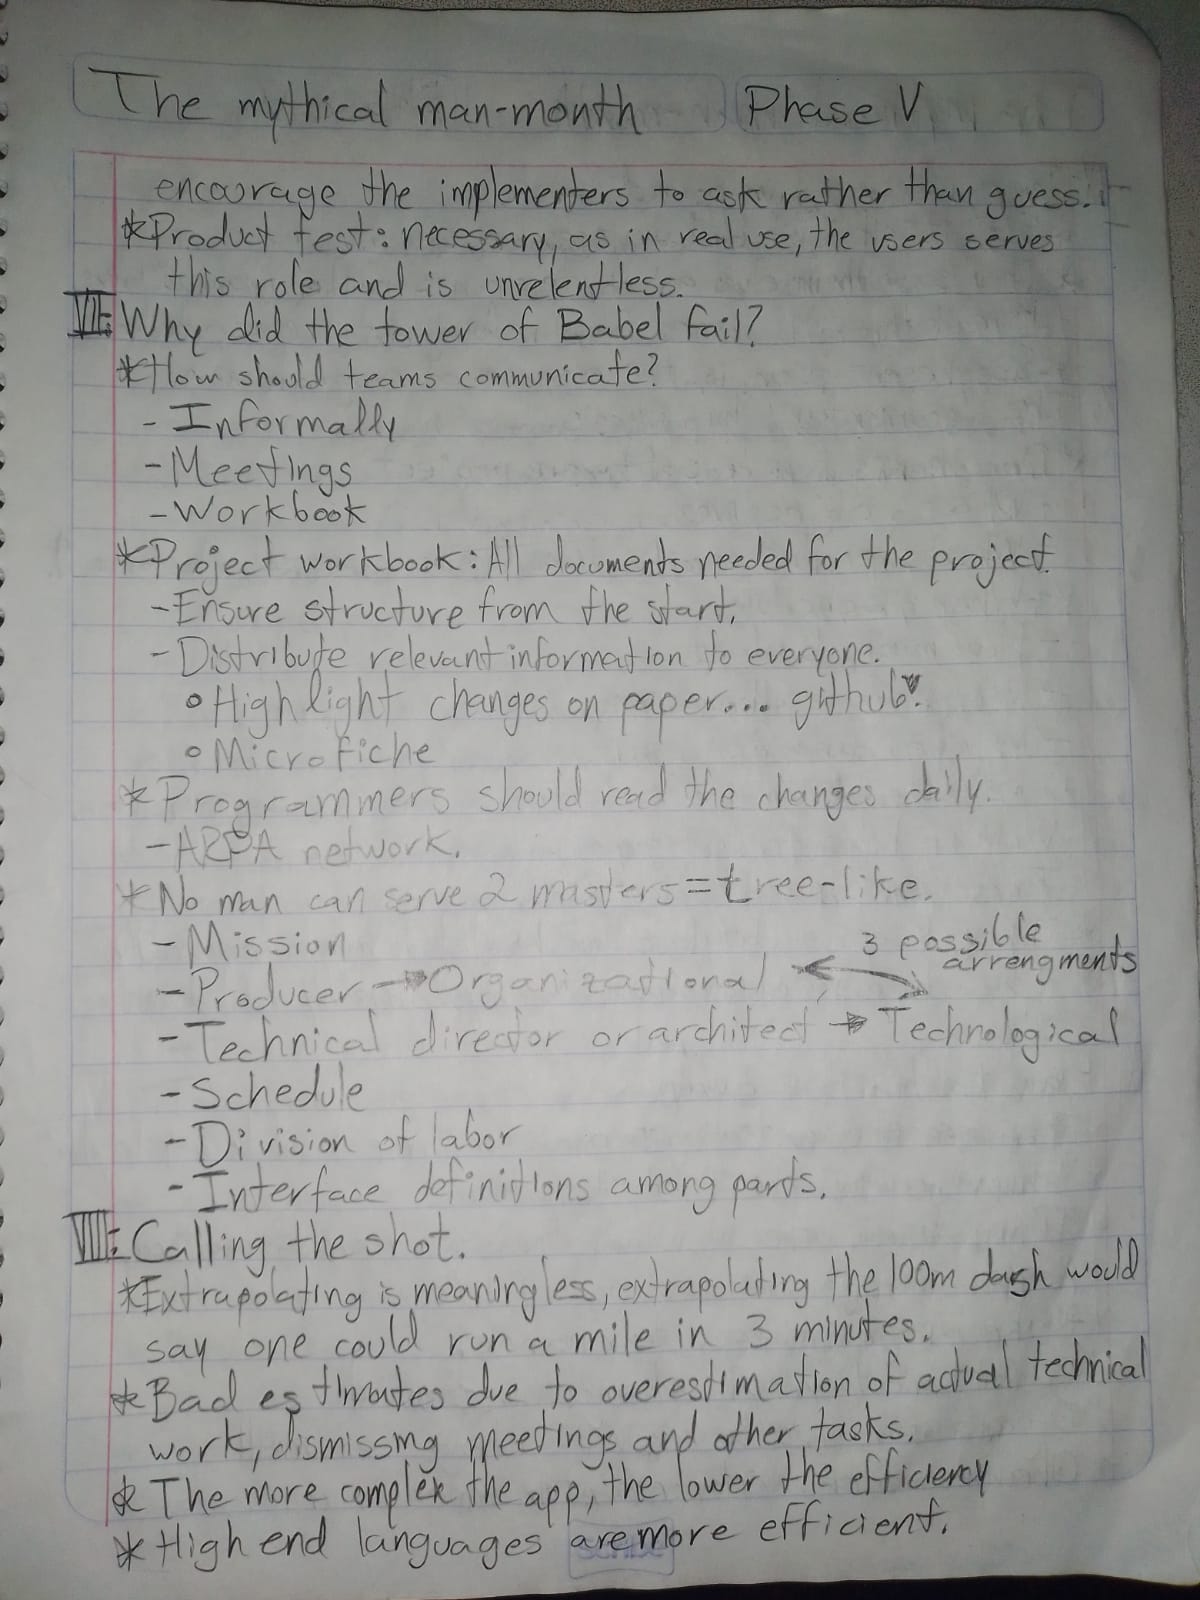 The mythical man-month Phase V
encourage the implementers to ask rather than guess.
*Product test: necessary, as in real use, the users serves
this role and is unrelentless.
VII: Why did the tower of Babel fail?
*How should teams communicate?
- Informally
- Meetings
- Workbook
*Project workbook: All documents needed for the project.
- Ensure structure from the start.
- Distribute relevant information to everyone.
○ Highlight changes on paper... github♥.
○ Microfiche
* Programmers should read the changes daily.
- ARPA network.
* No man can serve 2 masters = tree-like.
- Mission
3 possible
arrengments
- Producer → Organizational
- Technical director or architect → Technological
- Schedule
- Division of labor
- Interface definitions among parts.
VIII: Calling the shot.
*Extrapolating is meaningless, extrapolating the 100m dash would
say one could run a mile in 3 minutes.
* Bad estimates due to overestimation of actual technical
work, dismissing meetings and other tasks.
* The more complex the app, the lower the efficiency
* High end languages are more efficient.